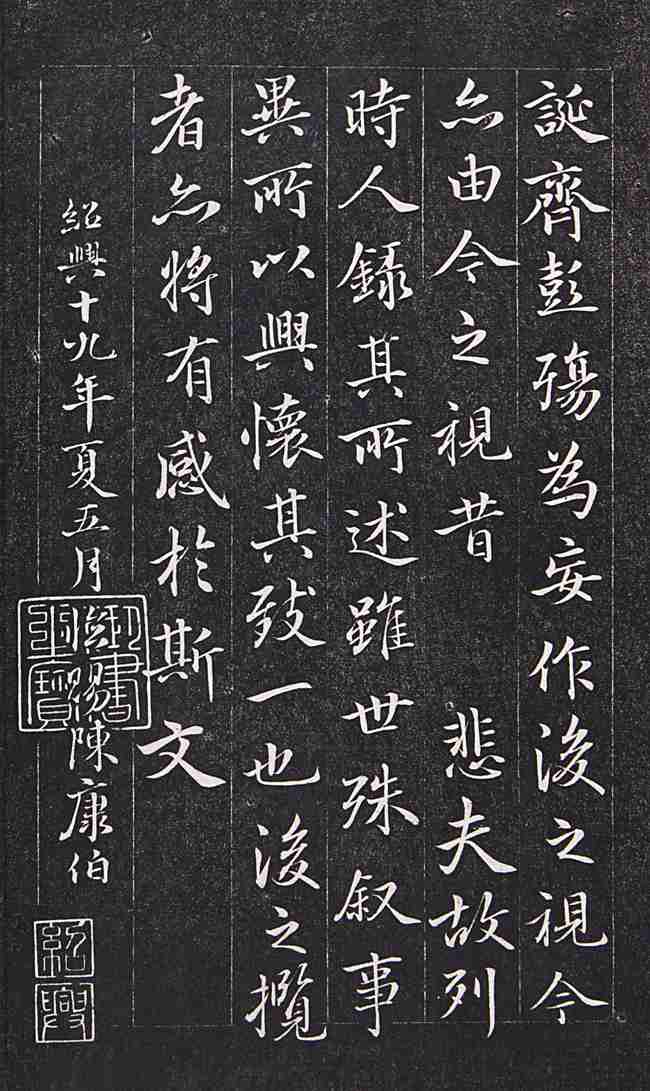 誕齊彭殤為妄作後之視今
亦由今之視昔 悲夫故列
時人錄其所述雖世殊叙事
異所以興懷其致一也後之攬
者亦將有感於斯文
紹興十九年夏五月 陳康伯
紹興